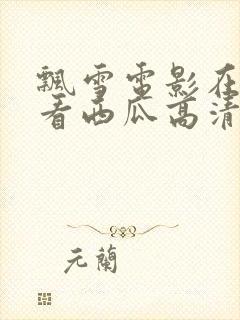 飘雪电影在
看西瓜高清
元蘭